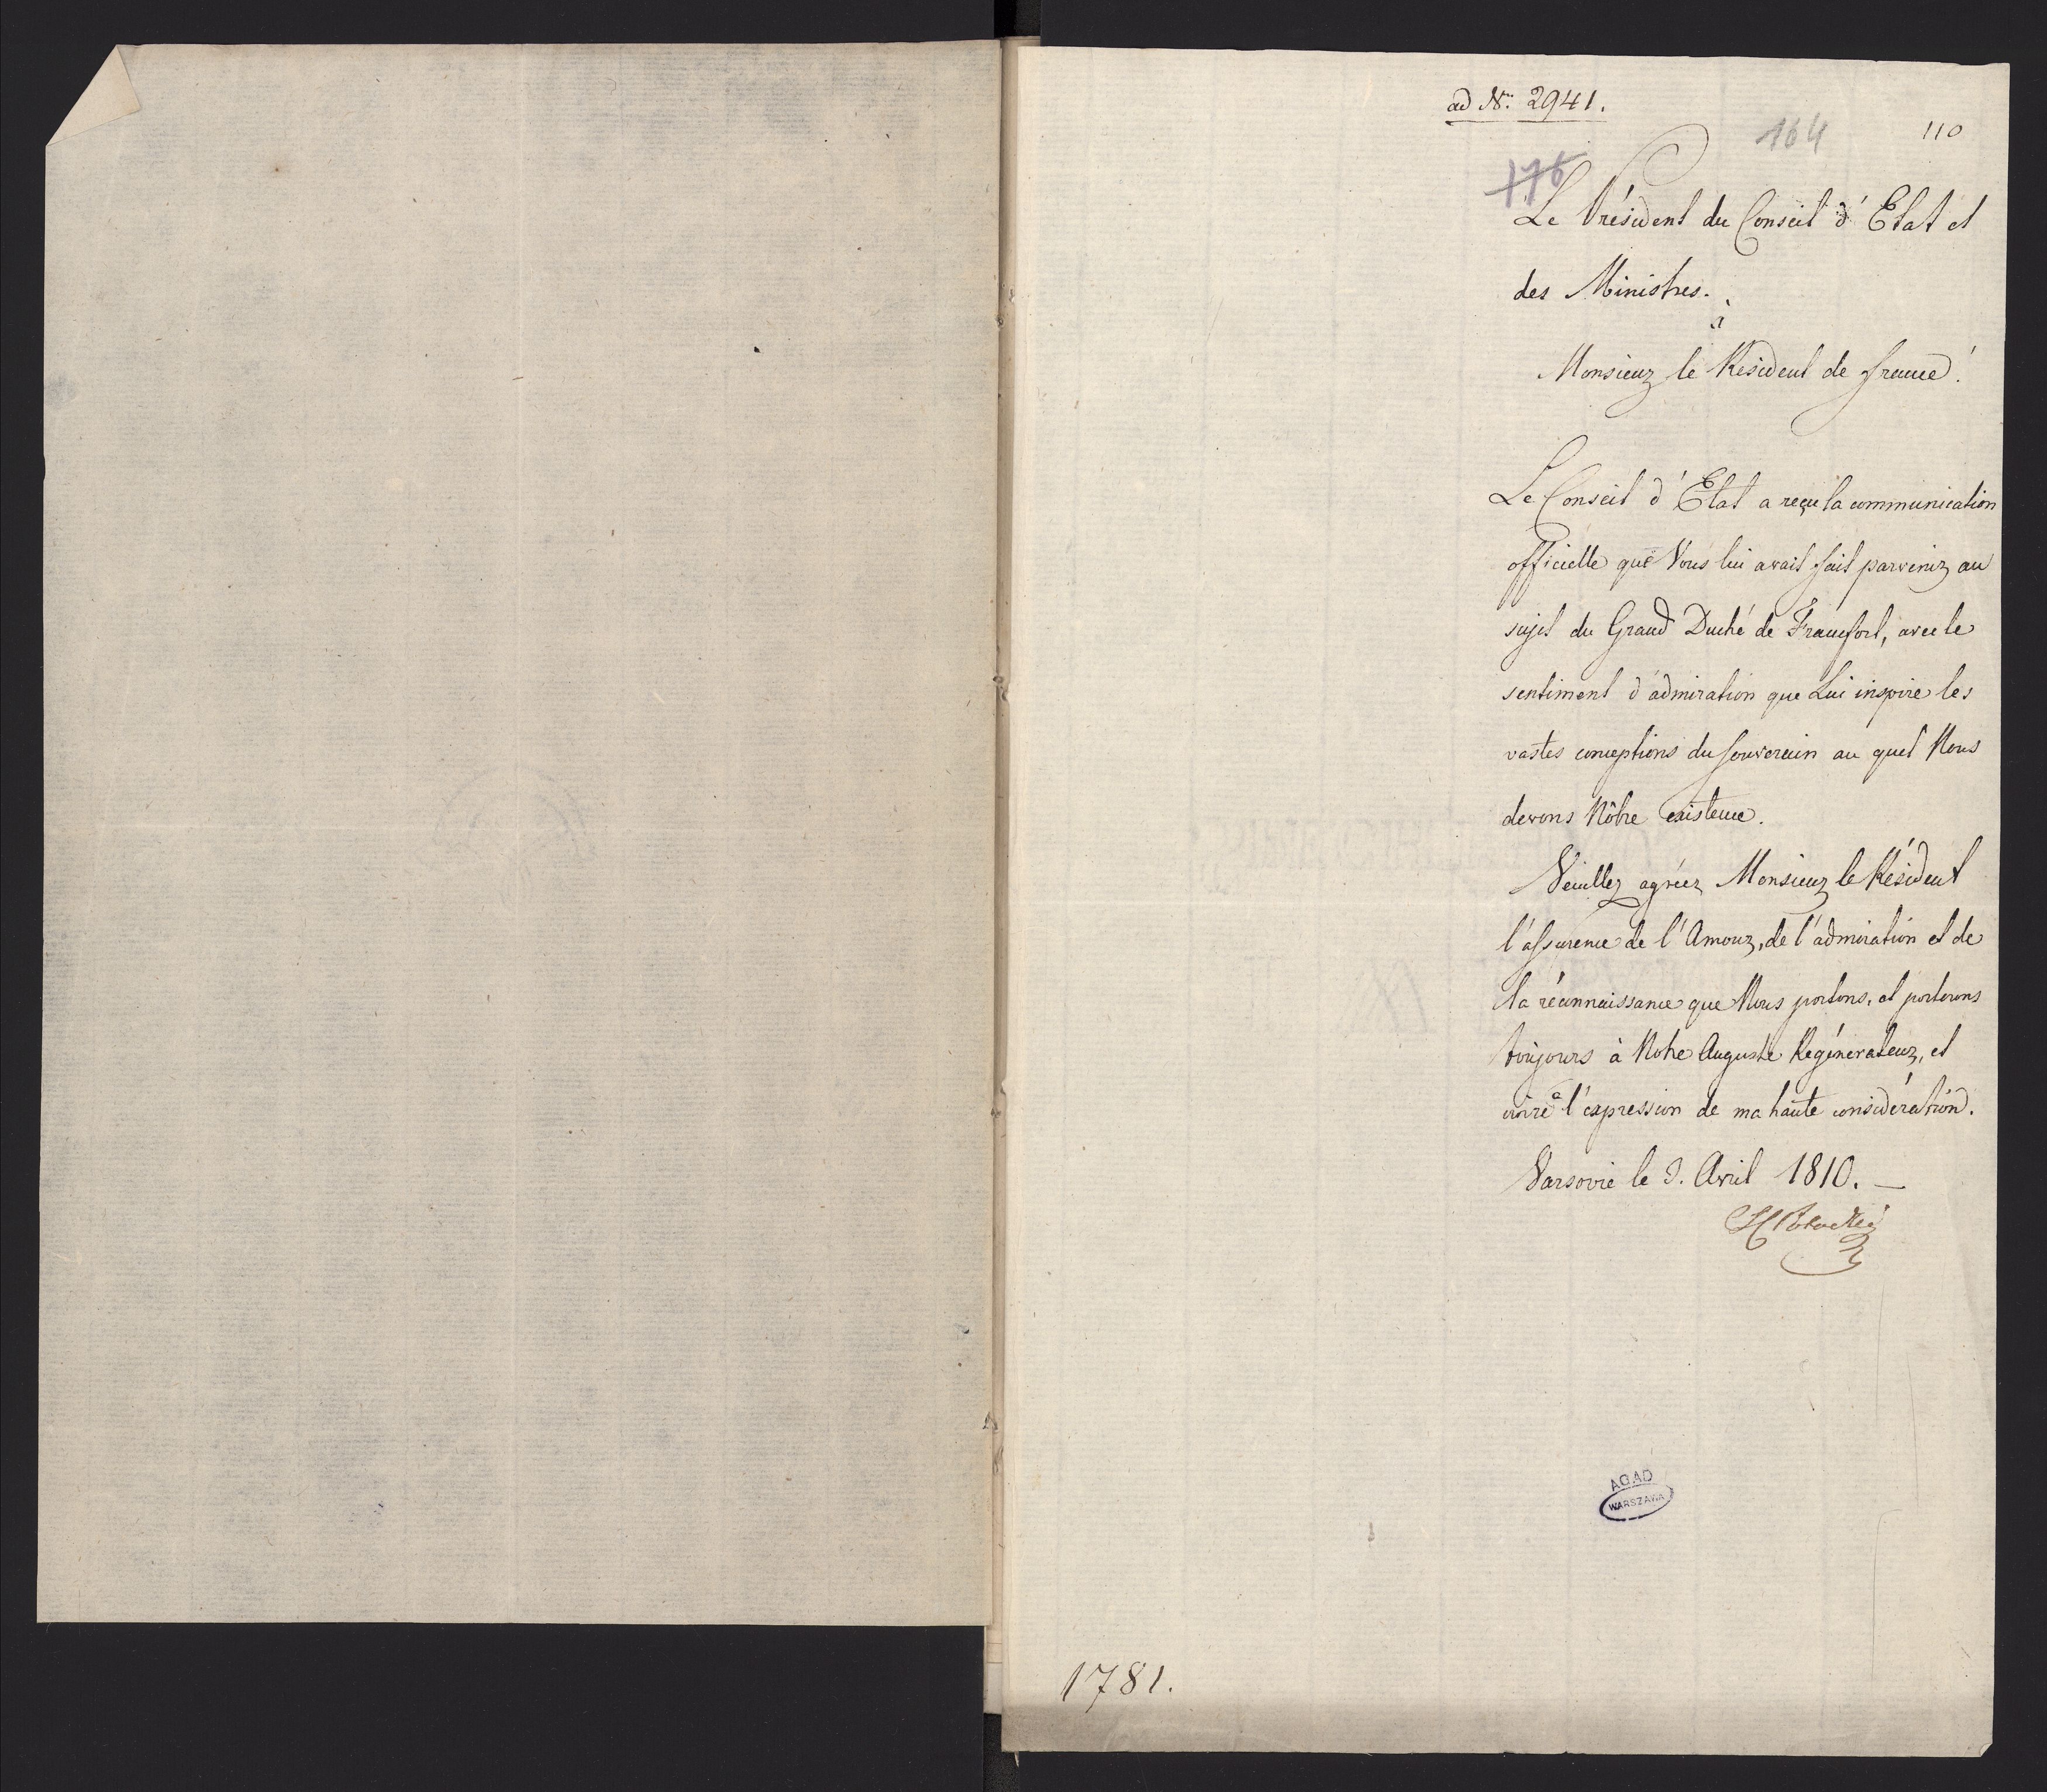 ad Nr. 2941.
164
110
176
Le Président du Conseil d'Etat et
des Ministres.
à
Monsieur le Résident de france!
Le Conseil d'Etat a reçu la communication
officielle que Vous lui avait fait parvenir au
sujet du Grand Duché de Francfort, avec le
sentiment d'admiration que Lui inspire les
vastes conceptions du souverain au quel Nous
devons Nôtre existence.
Veuillez agréer Monsieur le Résident
l'assurence de l'Amour, de l'admiration et de
la réconnaissance que Nous portons, et porterons
toujours à Notre Auguste Regénerateur, et
l'expression de ma haute considération.
Varsovie le 3. Avril 1810. —
Potocki
AGAD
WARSZAWA
1781.